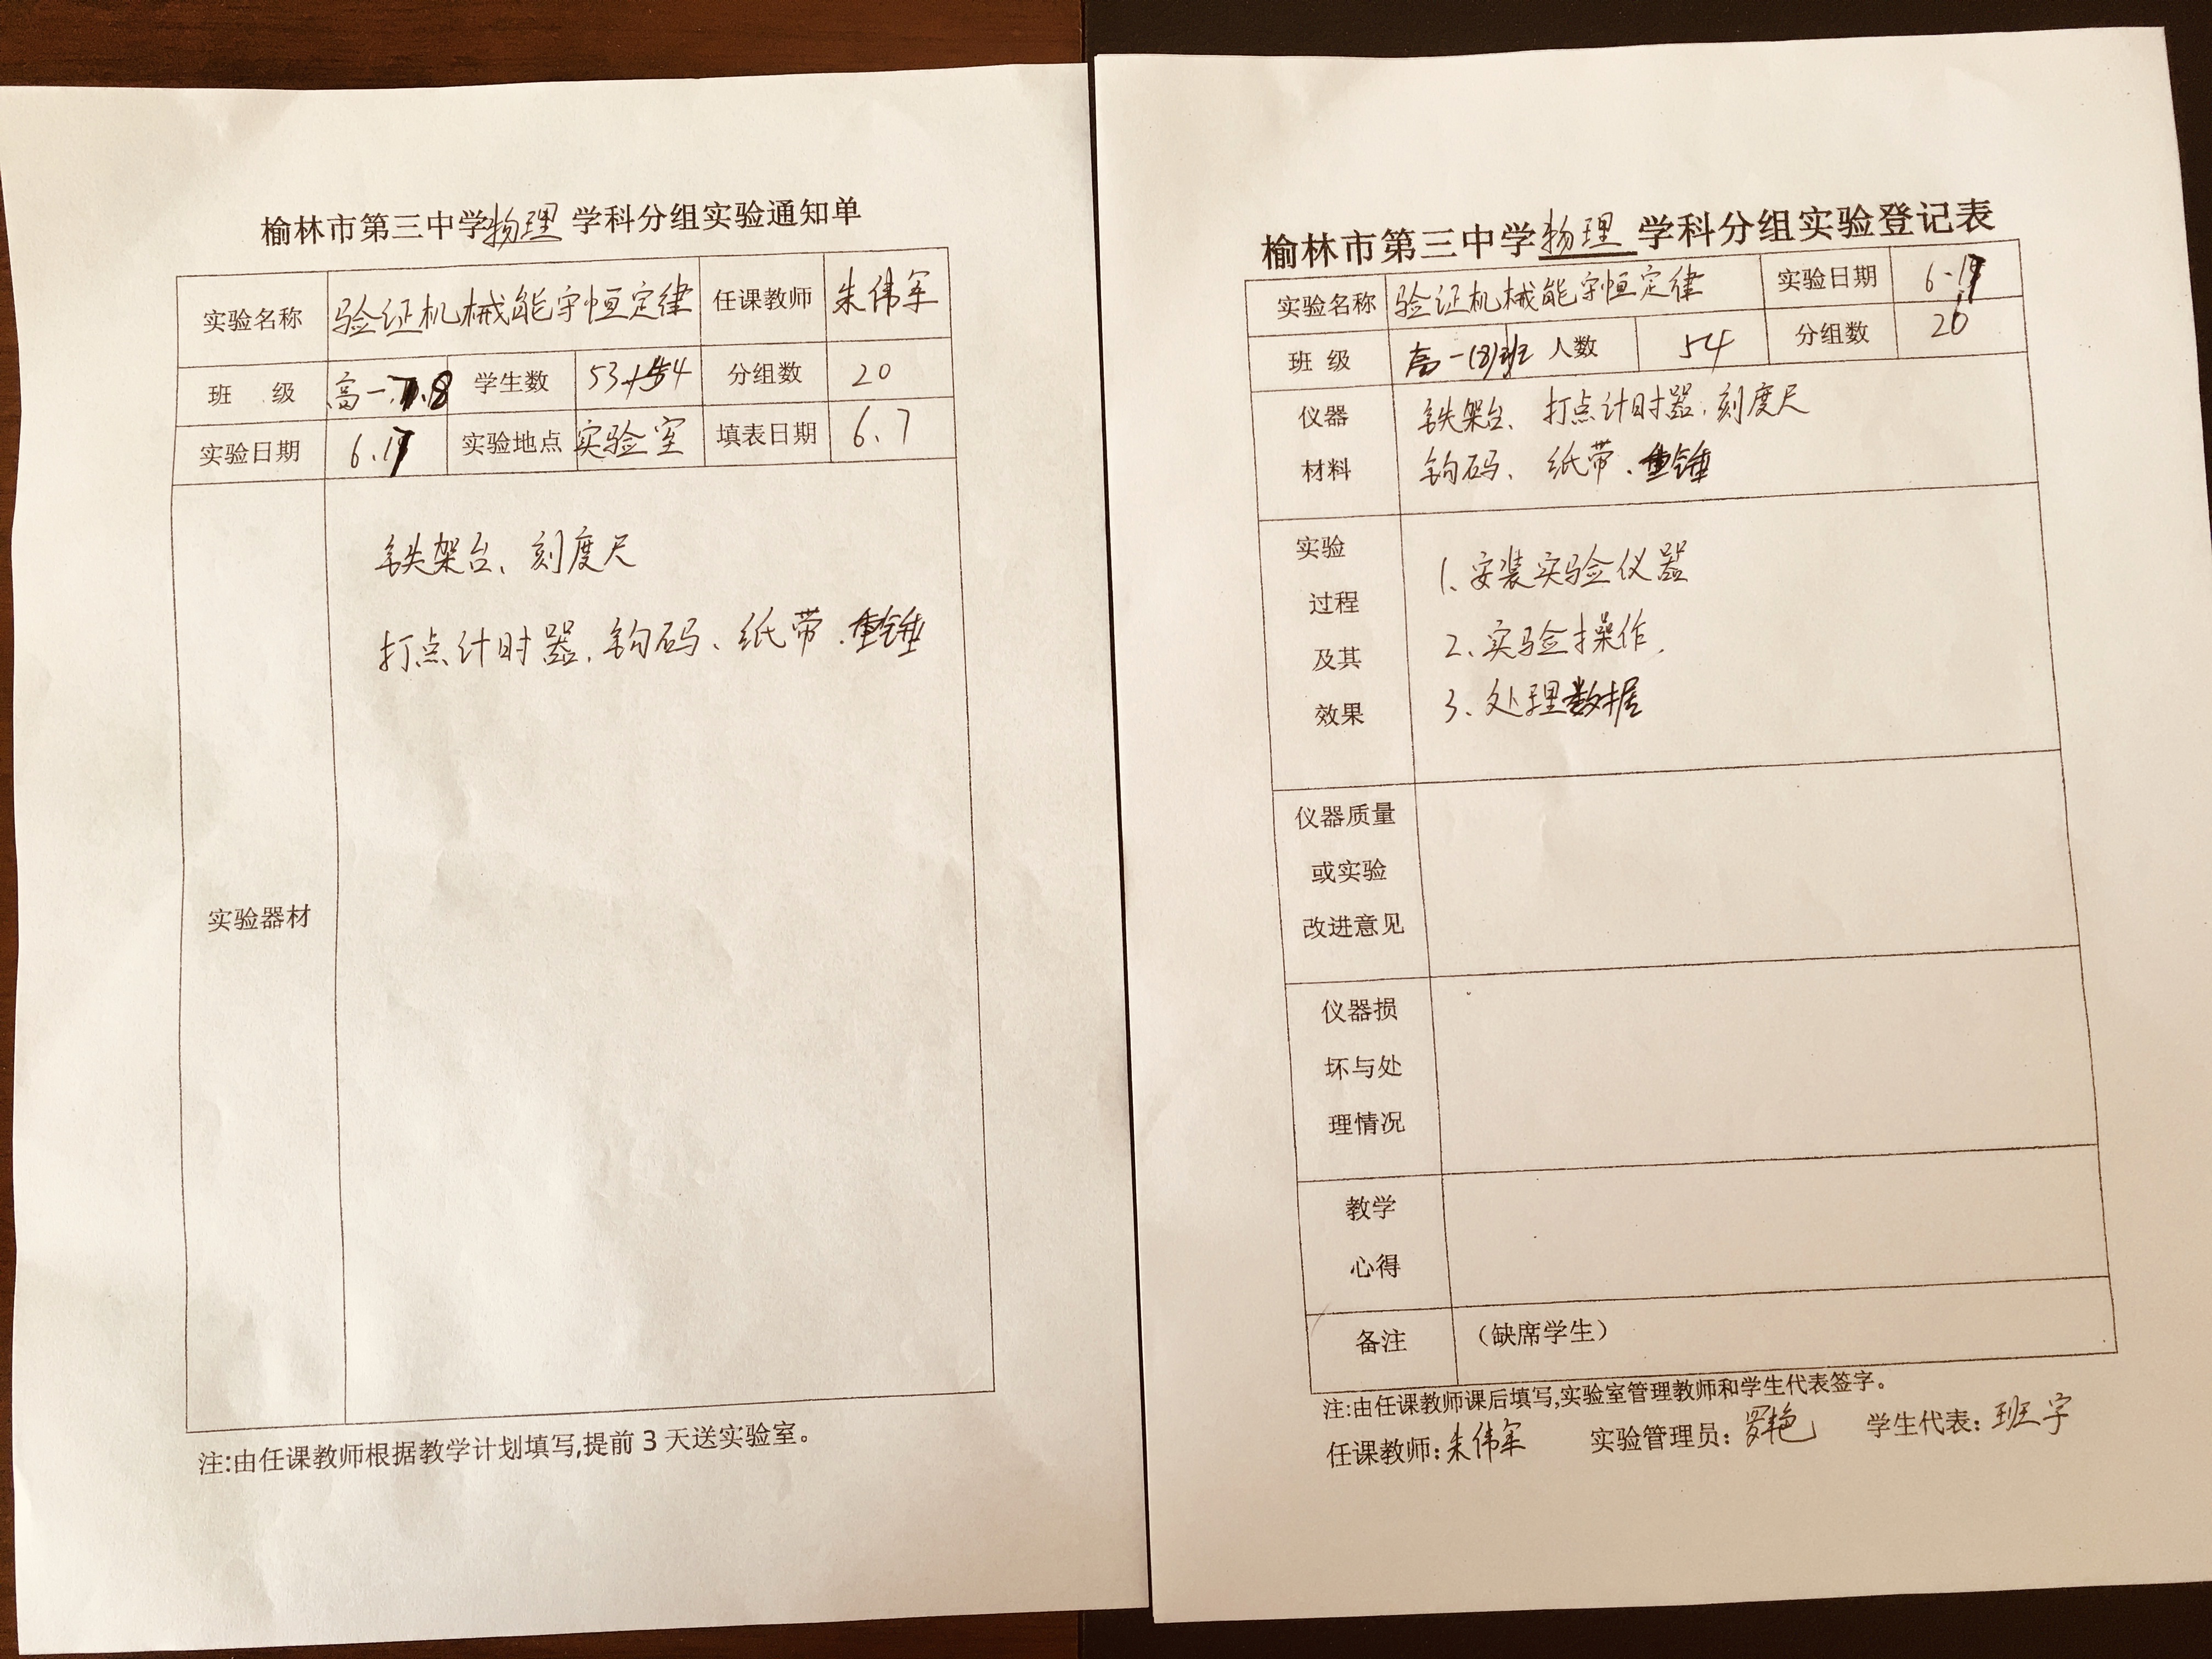 榆林市第三中学物理 学科分组实验通知单
实验名称 验证机械能守恒定律 任课教师 朱伟军
班 级 高一.7.8 学生数 53+54 分组数 20
实验日期 6.17 实验地点 实验室 填表日期 6.7
铁架台、刻度尺
打点计时器、钩码、纸带.重锤
实验器材
注:由任课教师根据教学计划填写,提前3天送实验室。
榆林市第三中学物理 学科分组实验登记表
实验名称 验证机械能守恒定律 实验日期 6.17
班 级 高一(8)班 人数 54 分组数 20
仪器 铁架台、打点计时器、刻度尺
材料 钩码、纸带、重锤
实验 1.安装实验仪器
过程
及其 2、实验操作.
效果 3、处理数据
仪器质量
或实验
改进意见
仪器损
坏与处
理情况
教学
心得
备注 （缺席学生）
注:由任课教师课后填写,实验室管理教师和学生代表签字。
任课教师:朱伟军 实验管理员:罗艳 学生代表:班宇